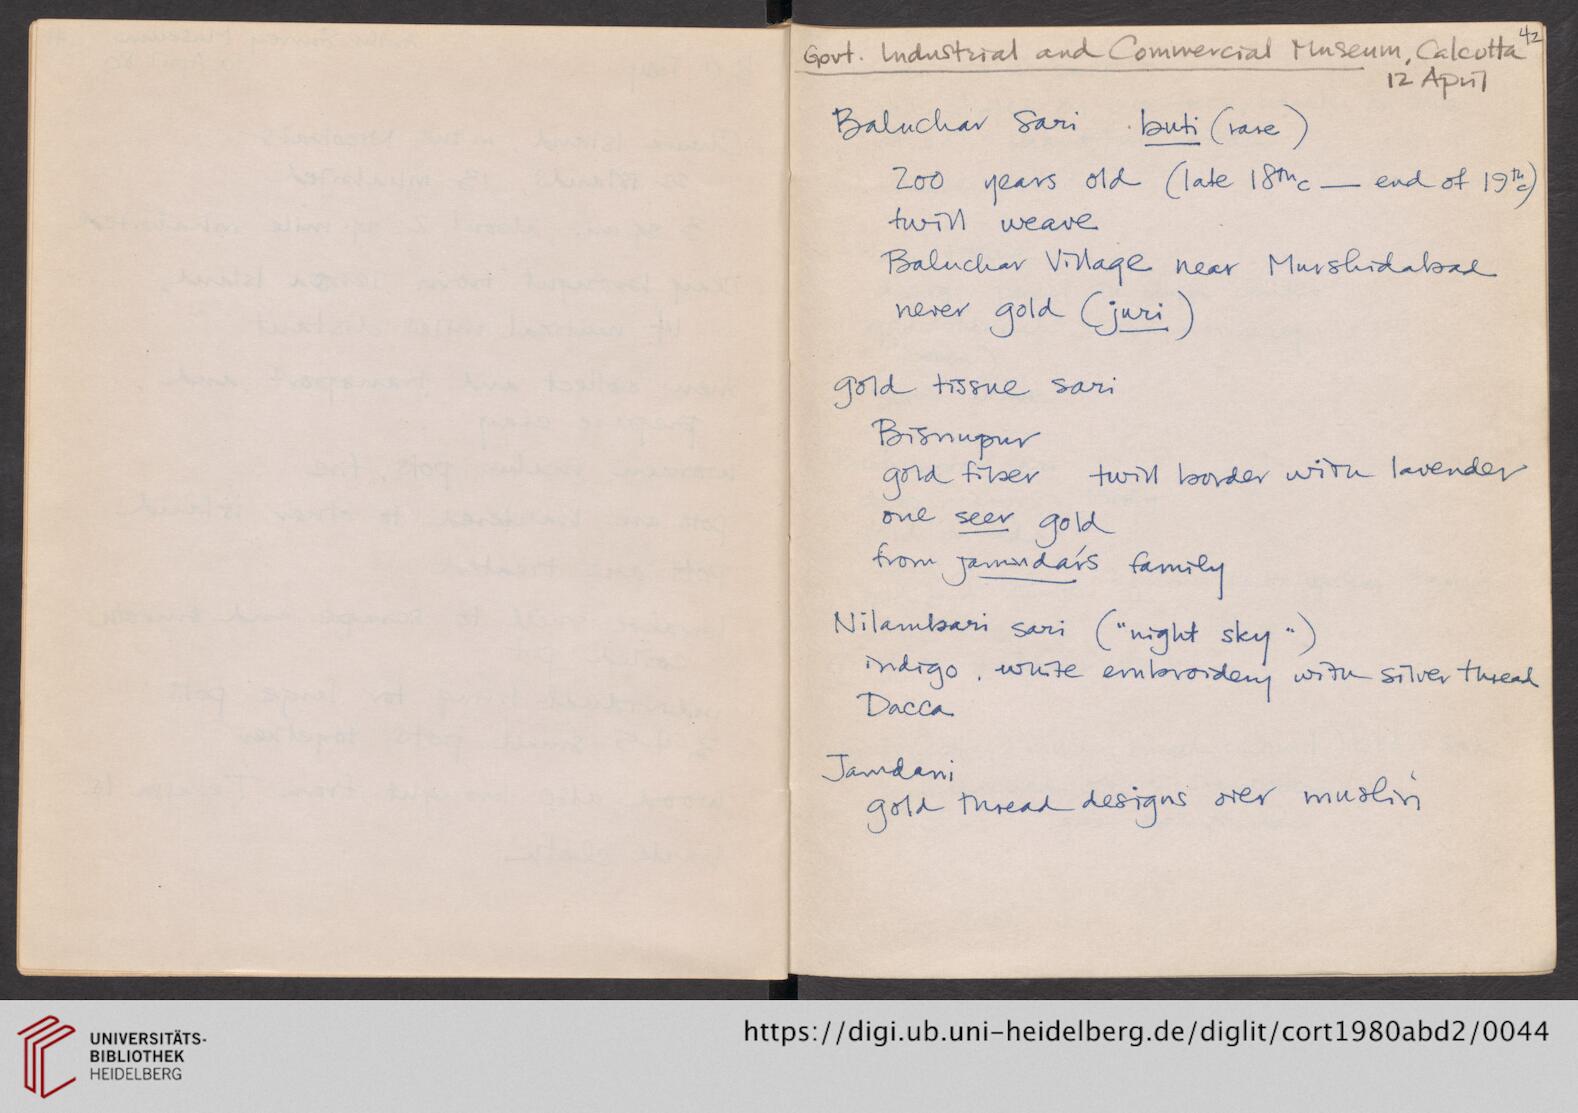 42
Govt. Industrial and Commercial Museum, Calcutta
12 April
Baluchar Sari buti (rare)
200 years old (late 18th c — end of 19th c)
twill weave
Baluchar Village near Murshidabad
never gold (juri)
gold tissue sari
Bisnupur
gold fiber twill border with lavender
one seer gold
from family
Nilambari sari ("night sky")
indigo, white embroidery with silver thread
Dacca
Jamdani
gold thread designs over muslin
UNIVERSITÄTS-
BIBLIOTHEK
HEIDELBERG
https://digi.ub.uni-heidelberg.de/diglit/cort1980abd2/0044